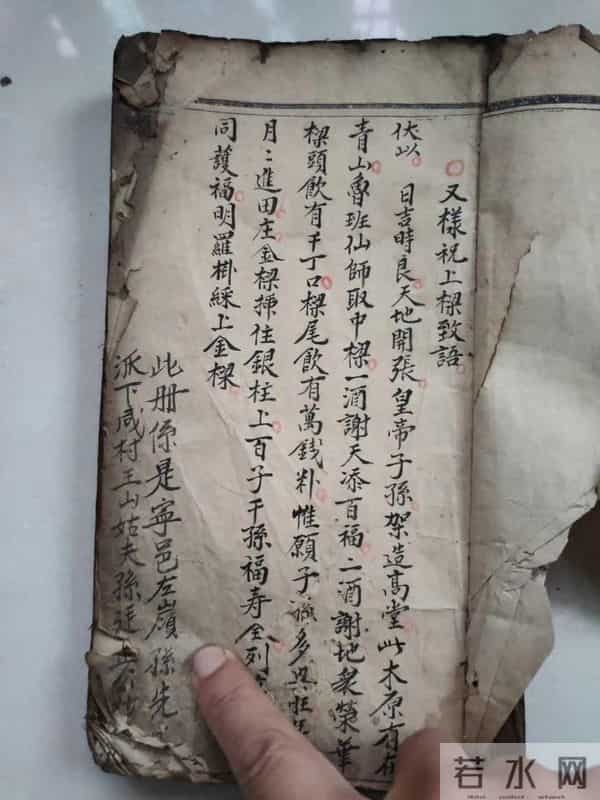 又樣祝上樑致語
伏以　日吉時良天地開張皇帝子孫架造高堂此木原有在
青山魯班仙師取中樑一酒謝天添百福二酒謝地炙榮華
樑頭飲有千丁口樑尾飲有萬錢粆惟願子孫多興旺
月〻進田庄金樑揷住銀柱上百子千孫福寿全列
同護福明羅掛綵上金樑
此册係是寧邑左嶺孫先
派下咸村王山姑夫孫廷
若水网